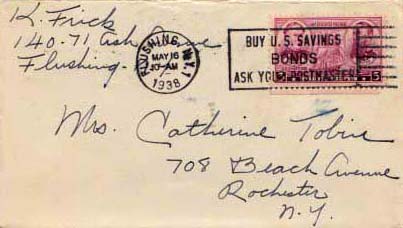 K. Frick
140-71 Ash Ave
Flushing
FLUSHING, N.Y. 1
MAY 16
1938
BUY U.S. SAVINGS
BONDS
ASK YOUR POSTMASTER
Mrs. Catherine Tobin
708 Beach Avenue
Rochester
N.Y.